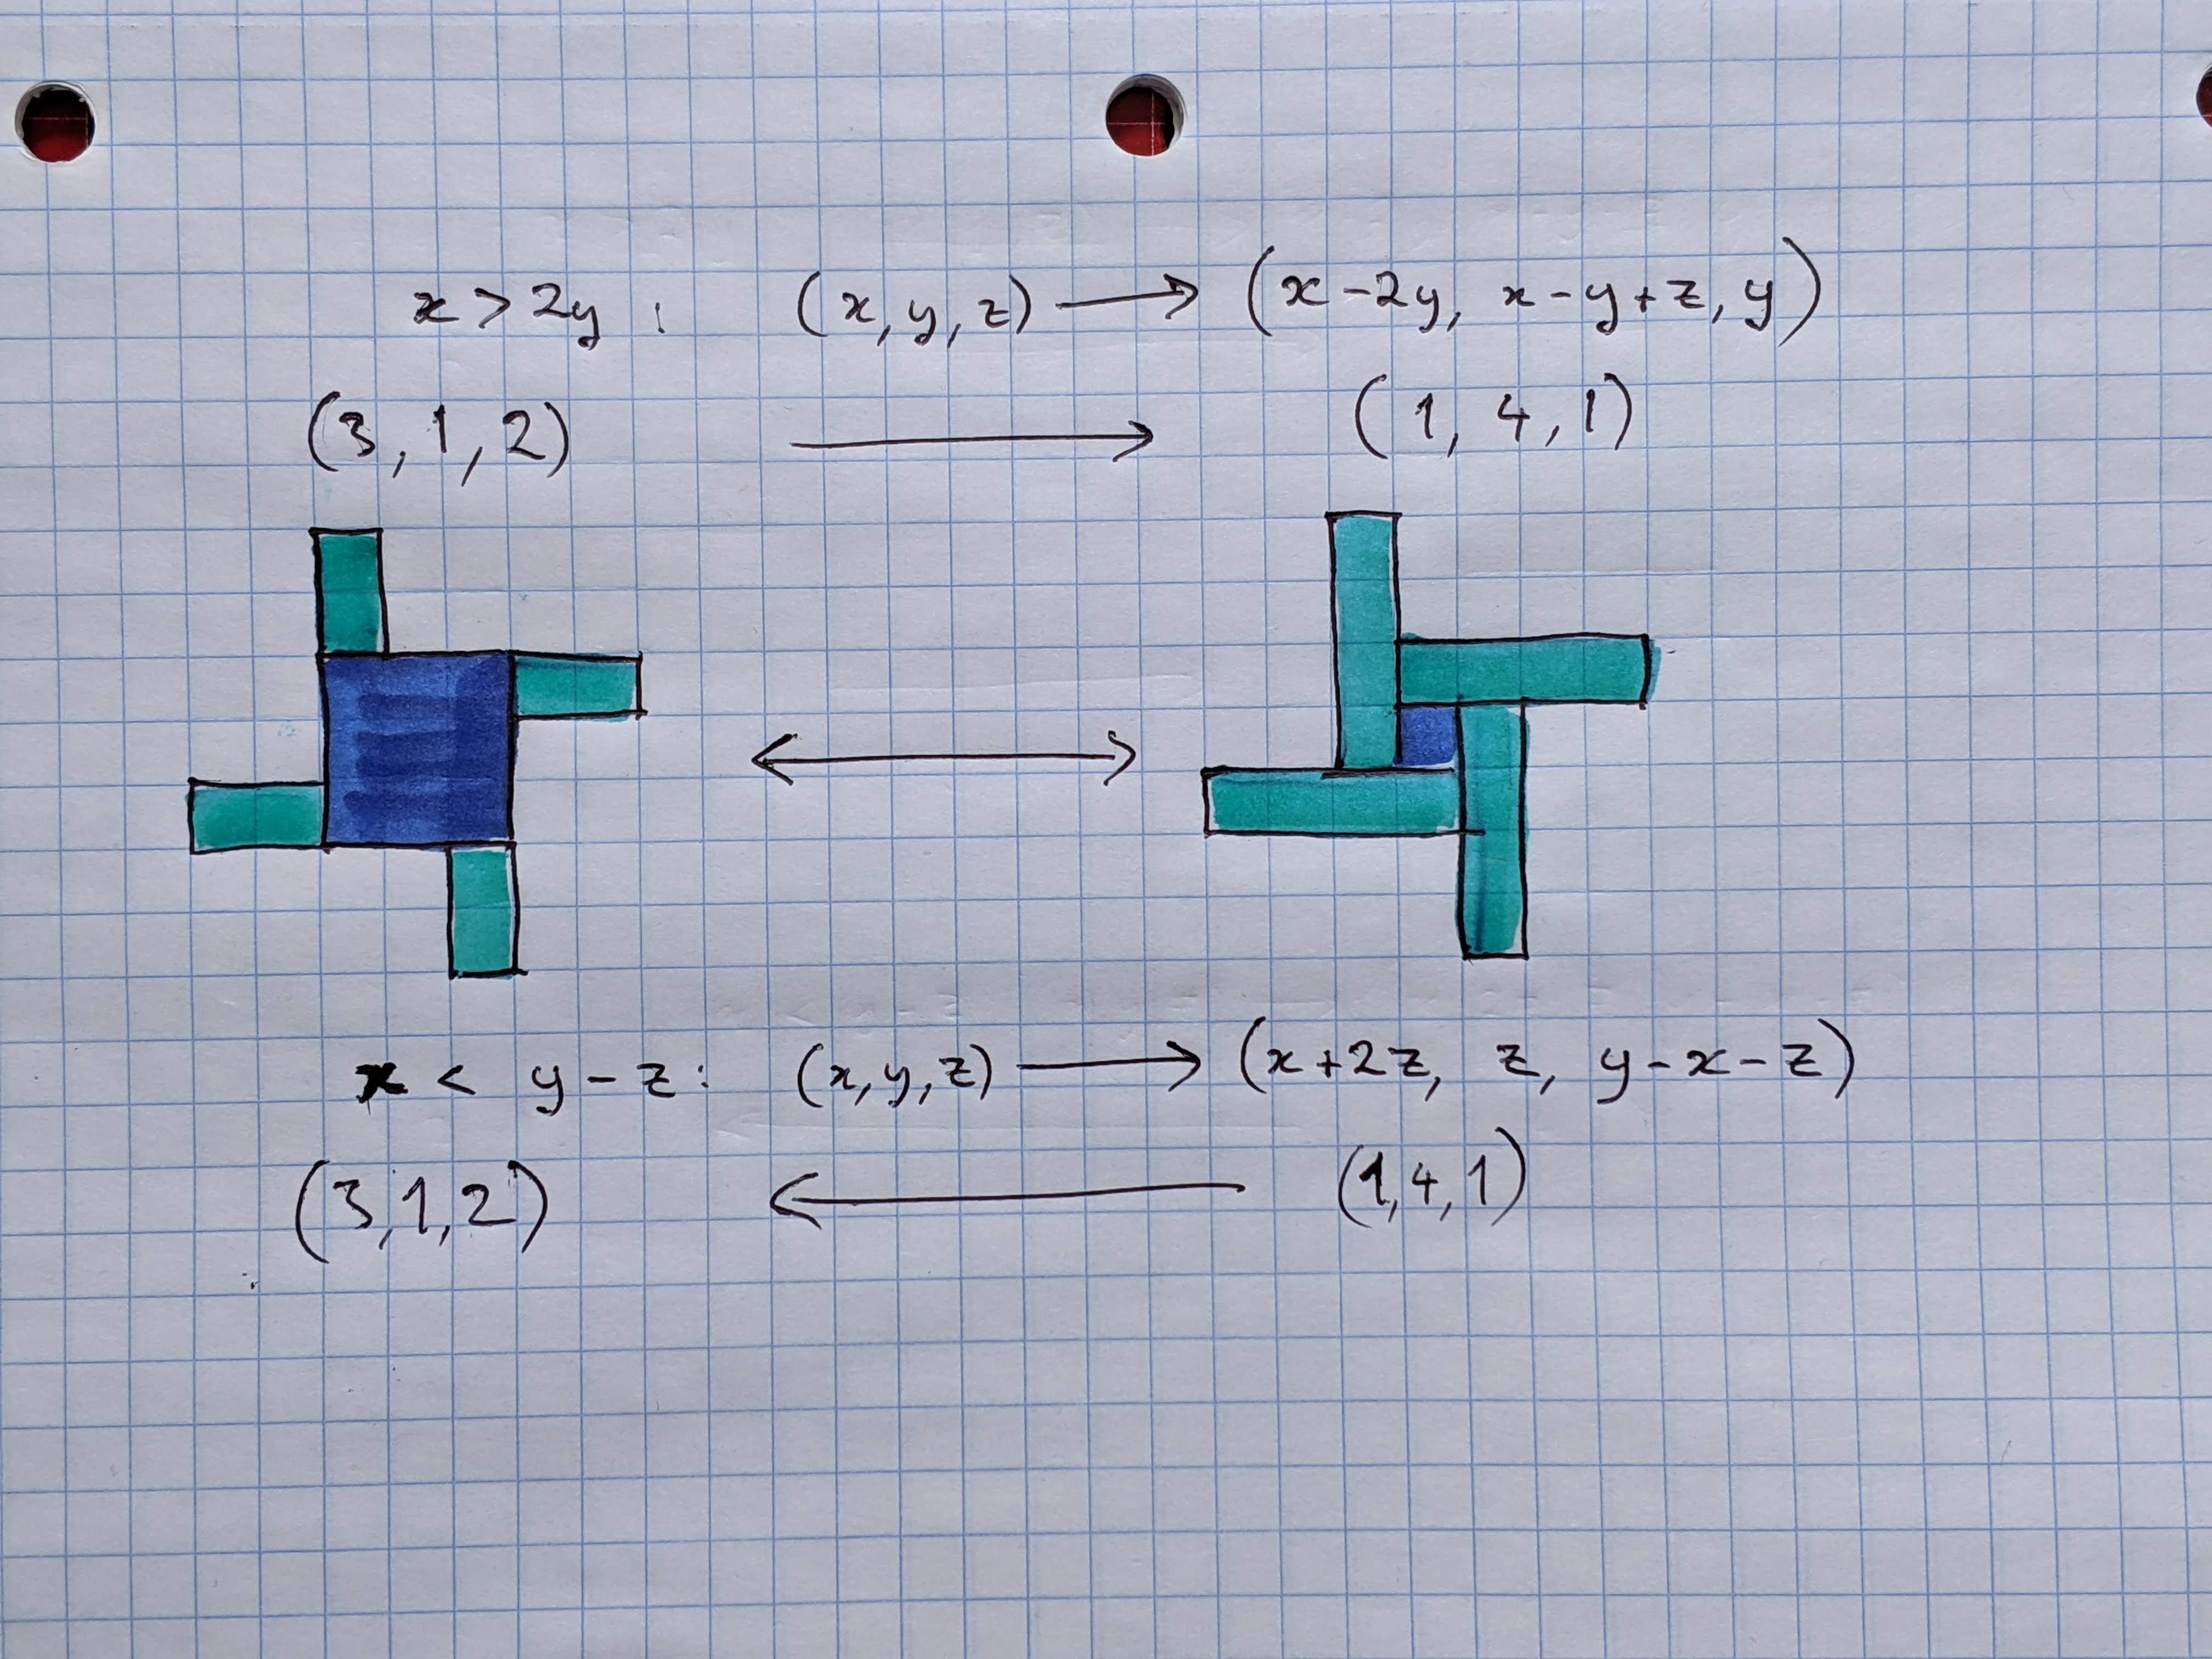 x > 2y : (x, y, z) → (x - 2y, x - y + z, y)
(3, 1, 2) → (1, 4, 1)
x < y - z : (x, y, z) → (x + 2z, z, y - x - z)
(3, 1, 2) ← (1, 4, 1)